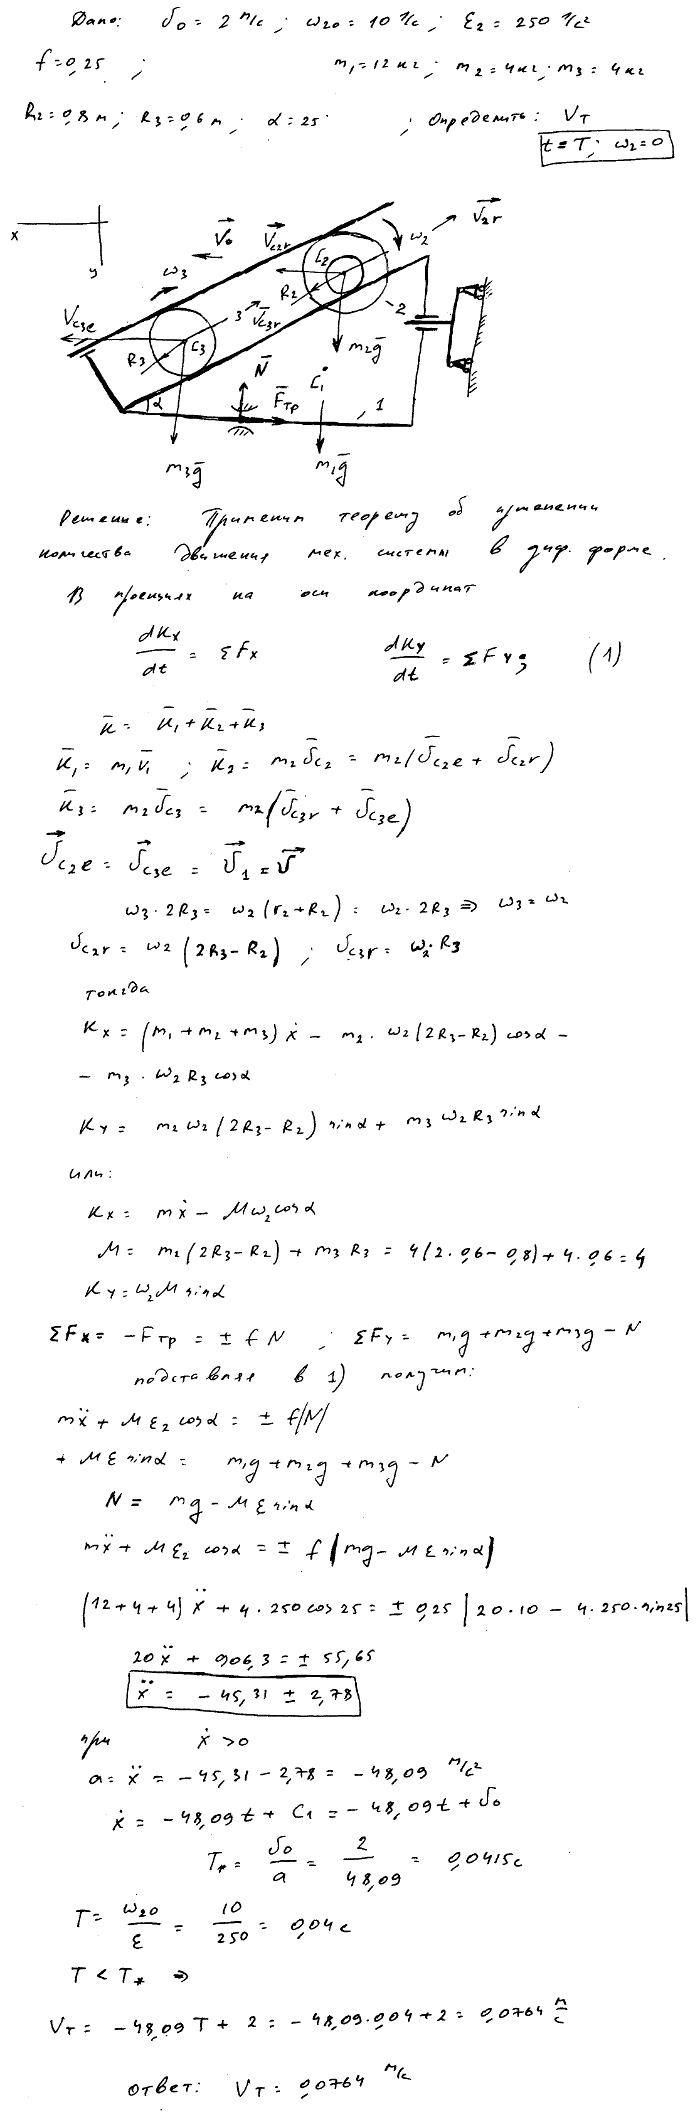 Дано: υ₀ = 2 м/с ; ω₂₀ = 10 1/с ; ε₂ = 250 1/с²
f = 0,25 ; m₁ = 12 кг ; m₂ = 4 кг ; m₃ = 4 кг
R₂ = 0,8 м ; R₃ = 0,6 м ; α = 25 ; Определить: V_T
t = T ; ω₂ = 0
x
y
V̅₀
V̅c2r
ω₂
V̅₂r
ω₃
C₂
R₂
2
Vc3e
3
V̅c3r
R₃
C₃
m₂g̅
N̅
C₁
α
F̅тр
1
m₃g̅
m₁g̅
Решение: Применим теорему об изменении
количества движения мех. системы в диф. форме.
В проекциях на оси координат
dKx/dt = ΣFx dKy/dt = ΣFy ; (1)
K̅ = K̅₁ + K̅₂ + K̅₃
K̅₁ = m₁V̅₁ ; K̅₂ = m₂υ̅c2 = m₂(υ̅c2e + υ̅c2r)
K̅₃ = m₂υ̅c3 = m₂(υ̅c3r + υ̅c3e)
υ̅c2e = υ̅c3e = υ̅₁ = υ̅
ω₃·2R₃ = ω₂(r₂+R₂) = ω₂·2R₃ ⇒ ω₃ = ω₂
υc2r = ω₂(2R₃ − R₂) ; υc3r = ω₂·R₃
тогда
Kx = (m₁ + m₂ + m₃)ẋ − m₂·ω₂(2R₃ − R₂)cosα −
− m₃·ω₂R₃cosα
Ky = m₂ω₂(2R₃ − R₂)sinα + m₃ω₂R₃sinα
или:
Kx = mẋ − Mω₂cosα
M = m₂(2R₃ − R₂) + m₃R₃ = 4(2·0,6 − 0,8) + 4·0,6 = 4
Ky = ω₂M sinα
ΣFx = −Fтр = ± fN ; ΣFy = m₁g + m₂g + m₃g − N
подставляя в 1) получим:
mẍ + Mε₂cosα = ± f|N|
+ Mε sinα = m₁g + m₂g + m₃g − N
N = mg − Mε sinα
mẍ + Mε₂ cosα = ± f|mg − Mε sinα|
(12+4+4)ẍ + 4·250 cos25 = ± 0,25|20·10 − 4·250·sin25|
20ẍ + 906,3 = ± 55,65
ẍ = −45,31 ± 2,78
при ẋ > 0
a = ẍ = −45,31 − 2,78 = −48,09 м/с²
ẋ = −48,09t + C₁ = −48,09t + υ₀
T* = υ₀/a = 2/48,09 = 0,0415с
T = ω₂₀/ε = 10/250 = 0,04с
T < T* ⇒
V_T = −48,09T + 2 = −48,09·0,04 + 2 = 0,0764 м/с
ответ: V_T = 0,0764 м/с